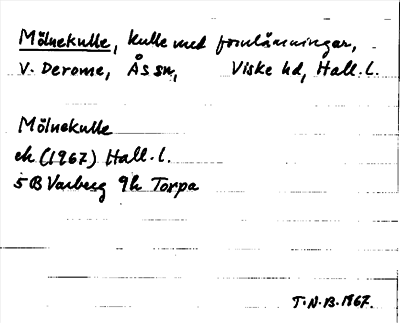 Mölnekulle, kulle med fornlämningar,
V. Derome, Ås sn, Viske hd, Hall. l.
Mölnekulle
ek (1967) Hall. l.
5B Varberg 9h Torpa
T.N.B. 1967.